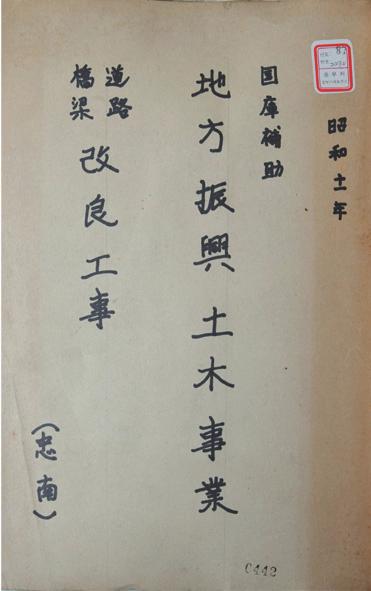 昭和十一年
国庫補助
地方振興土木事業
道路
橋梁
改良工事
(忠南)
C442